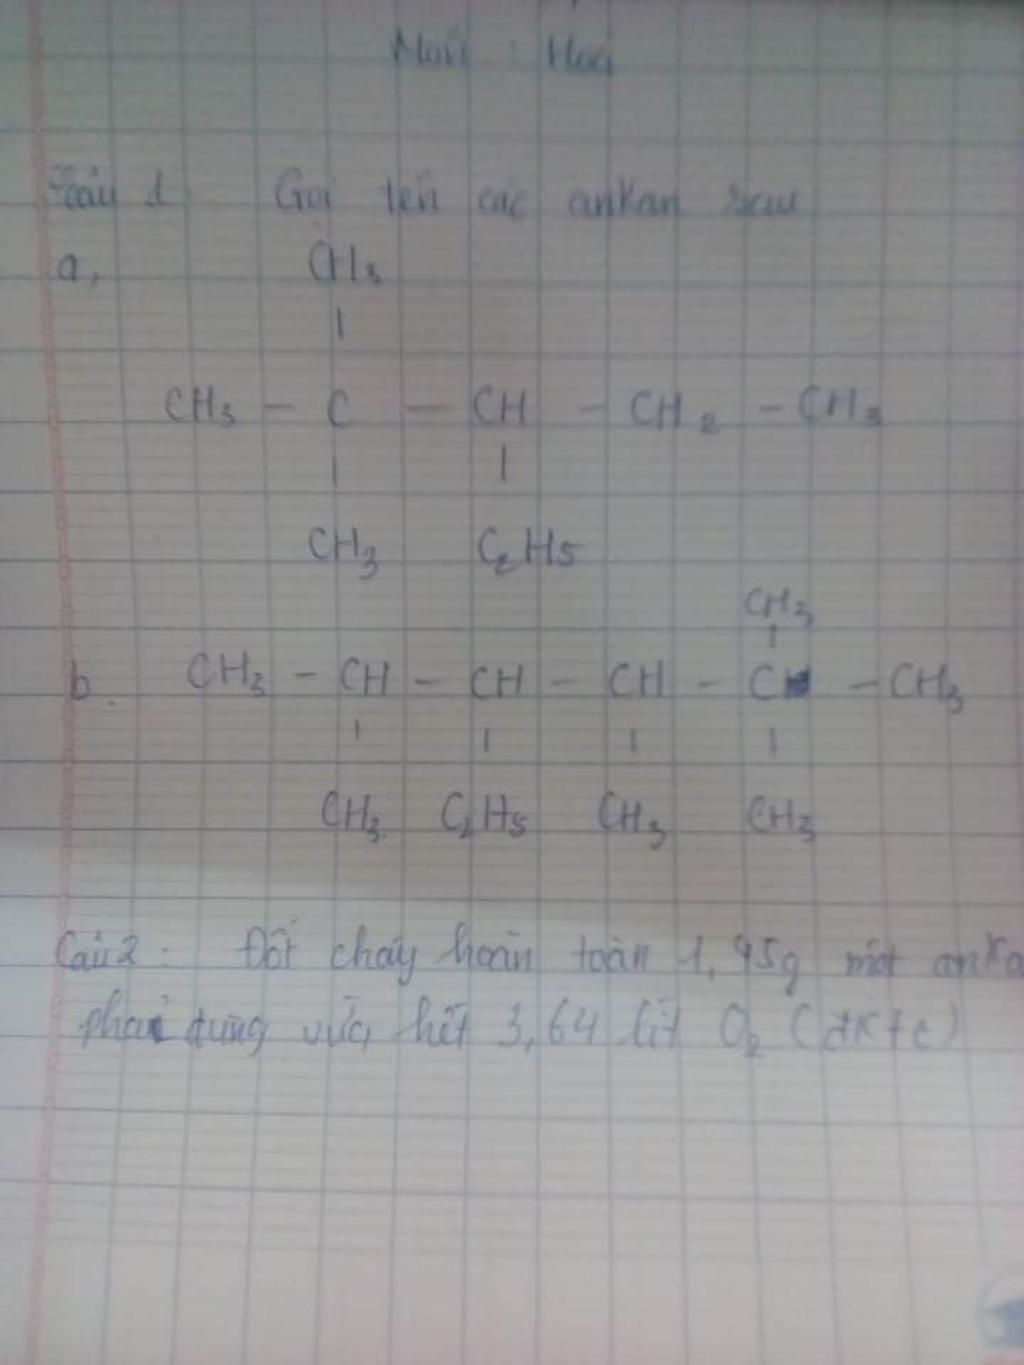 Môn : Hoá
Câu 1 Gọi tên các ankan sau
a, CH3
|
CH3 - C - CH - CH2 - CH3
| |
CH3 C2H5
CH3
|
b. CH3 - CH - CH - CH - C - CH3
| | | |
CH3 C2H5 CH3 CH3
Câu 2 : Đốt cháy hoàn toàn 1,45g một anka
phải dùng vừa hết 3,64 lít O2 (đktc)